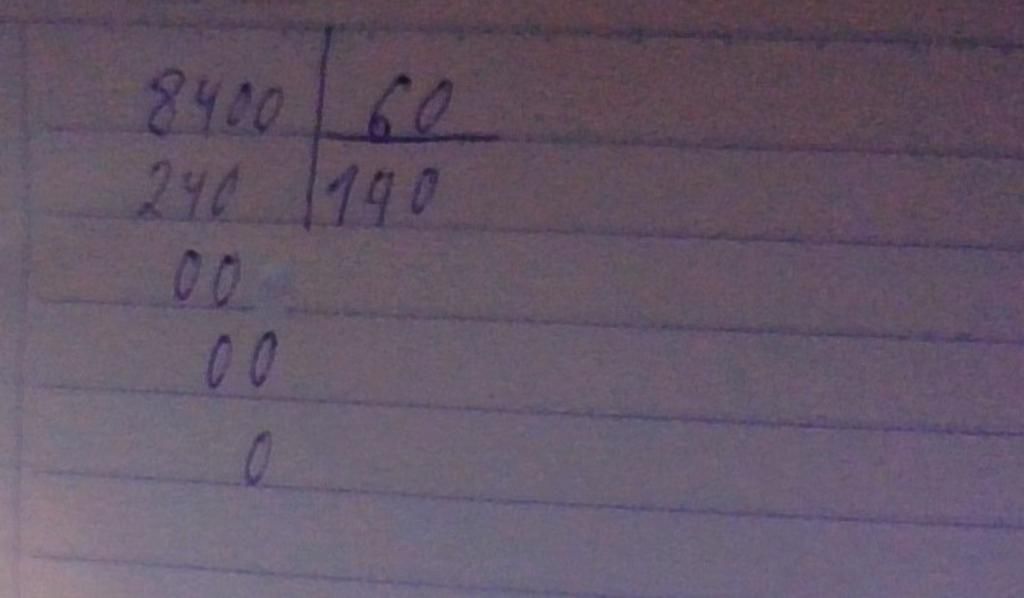 8400 60
240 140
00
00
0